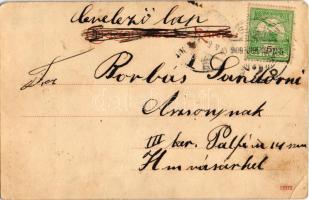 levelező lap
Borbás Sándorné
Asszonynak
III ker. Pálfi u 14 szám
Hmvásárhel